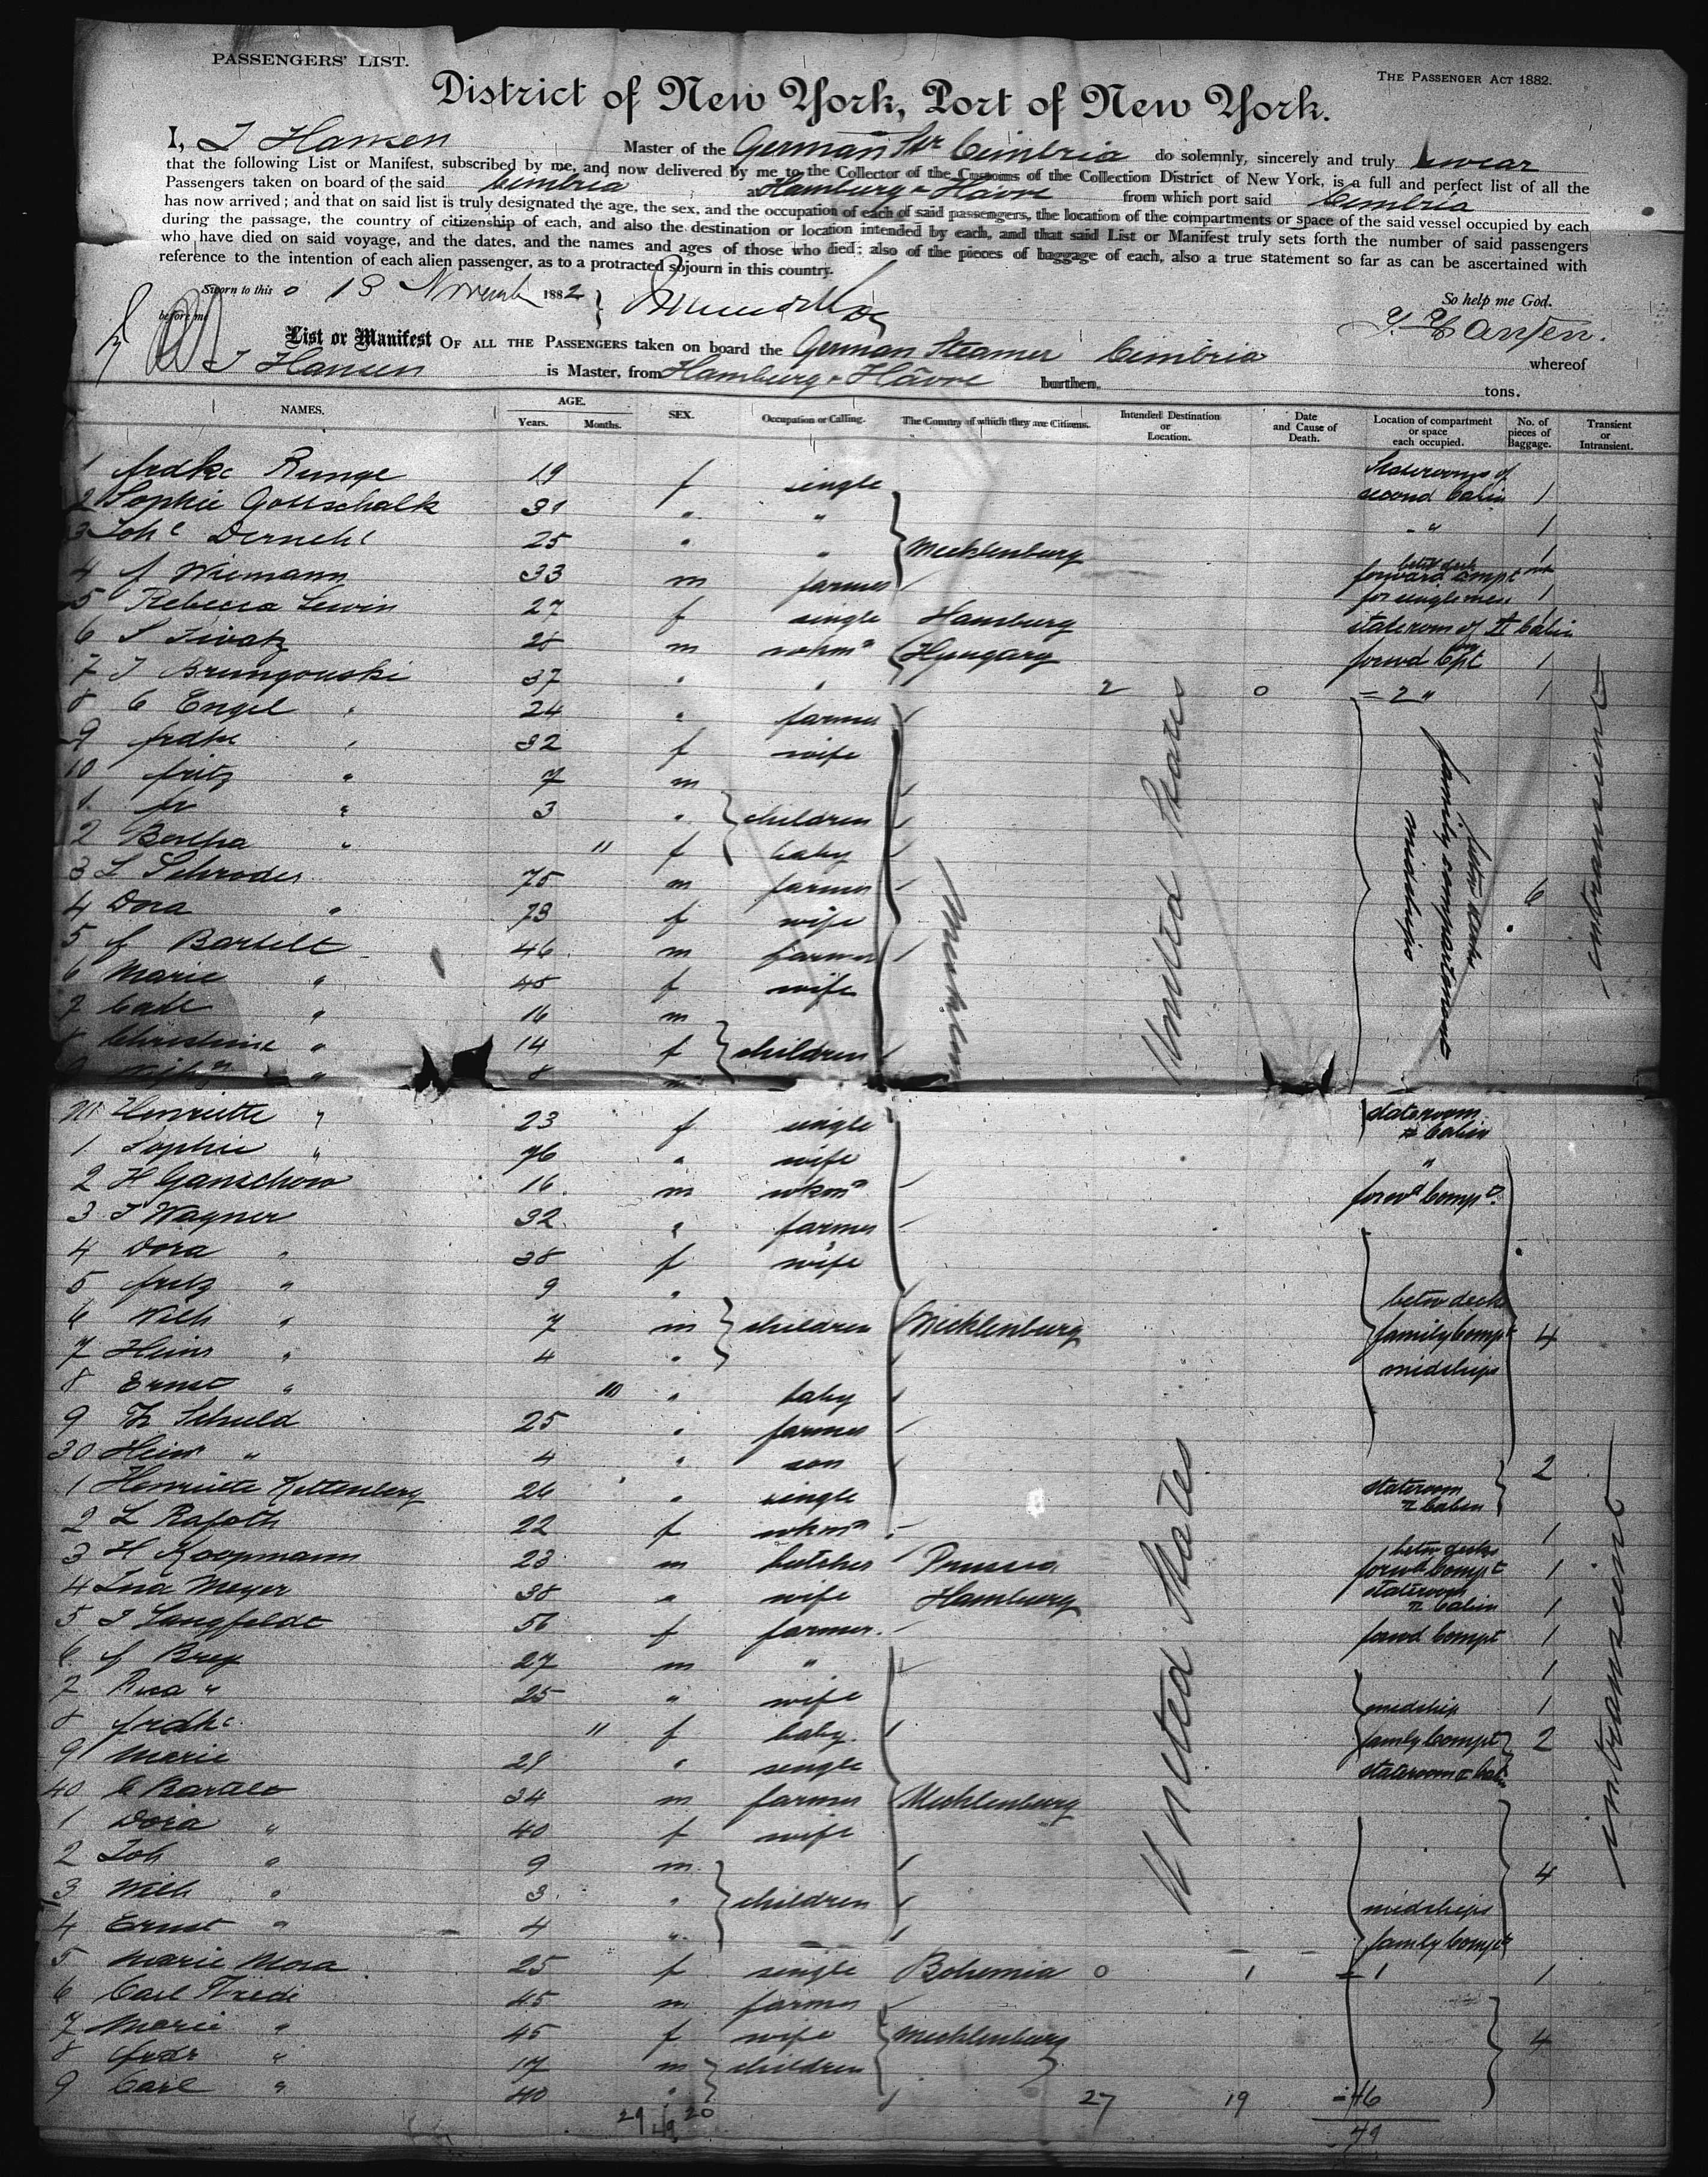 PASSENGERS' LIST.
THE PASSENGER ACT 1882.
District of New York, Port of New York.
I, J Hansen Master of the German Str Cimbria do solemnly, sincerely and truly swear
that the following List or Manifest, subscribed by me, and now delivered by me to the Collector of the Customs of the Collection District of New York, is a full and perfect list of all the
Passengers taken on board of the said Cimbria at Hamburg & Hâvre from which port said Cimbria
has now arrived; and that on said list is truly designated the age, the sex, and the occupation of each of said passengers, the location of the compartments or space of the said vessel occupied by each
during the passage, the country of citizenship of each, and also the destination or location intended by each, and that said List or Manifest truly sets forth the number of said passengers
who have died on said voyage, and the dates, and the names and ages of those who died; also of the pieces of baggage of each, also a true statement so far as can be ascertained with
reference to the intention of each alien passenger, as to a protracted sojourn in this country.
Sworn to this 13 Novemb 1882 So help me God.
before me J. Hansen.
List or Manifest OF ALL THE PASSENGERS taken on board the German Steamer Cimbria whereof
J Hansen is Master, from Hamburg & Hâvre burthen, tons.
NAMES. AGE. Years. Months. SEX. Occupation or Calling. The Country of which they are Citizens. Intended Destination or Location. Date and Cause of Death. Location of compartment or space each occupied. No. of pieces of Baggage. Transient or Intransient.
1 Frdke Runge 19 f single Staterooms of
2 Sophie Gottschalk 31 " " second Cabin 1
3 Joh 25 " " Mecklenburg " 1
4 F Wiemann 33 m farmer betw deck forward Compt 1
5 Rebecca Lewin 27 f single Hamburg for single men 1
6 28 m wkmn Hungary stateroom of II Cabin
7 J 37 " " 2 0 forwd Cpt 1
8 C Engel " 24 " farmer = 2 " 1
9 Frdke " 32 f wife
10 Fritz " 7 m
1 Fr " 3 " children
2 Bertha " 11 f baby
3 L Schroder 75 m farmer 6
4 Dora " 73 f wife
5 F Bartelt 46 m farmer
6 Marie " 48 f wife
7 Carl " 16 m
8 Christine " 14 f children
9 " 8 m
United States
betw decks
family compartement
midships
intransient
20 Henriette " 23 f single stateroom
1 Sophie " 76 " wife II Cabin
2 H Ganschow 16 m wkmn "
3 J Wagner 32 " farmer forwd Compt
4 Dora " 38 f wife
5 Fritz " 9 "
6 Wilh " 7 m children Mecklenburg betw decks
7 Heinr " 4 " family Compt 4
8 Ernst " 10 " baby midships
9 Schuld 25 " farmer
30 Heinr " 4 " son 2
1 Henriette Kettenberg 26 " single stateroom
2 L 22 f wkmn II Cabin 1
3 H Koopmann 23 m butcher Prussia betw decks forwd Compt 1
4 Ina Meyer 38 " wife Hamburg stateroom II Cabin 1
5 J Langfeldt 56 f farmer. forwd Compt 1
6 F Brey 27 m " 1
7 Rica " 25 " wife midship 1
8 Frdke 11 f baby family Compt 2
9 Marie 29 " single stateroom II Cabin
40 C Bartelt 34 m farmer Mecklenburg
1 Dora " 40 f wife
2 Joh " 9 m 4
3 Wilh " 3 " children midships
4 Ernst " 4 " family Compt
5 Marie Mora 25 f single Bohemia 0 1 = 1 1
6 Carl 45 m farmer
7 Marie " 45 f wife Mecklenburg 4
8 Frdr " 17 m children
9 Carl " 40 " 27 19 = 46
29 20 49
United States
intransient